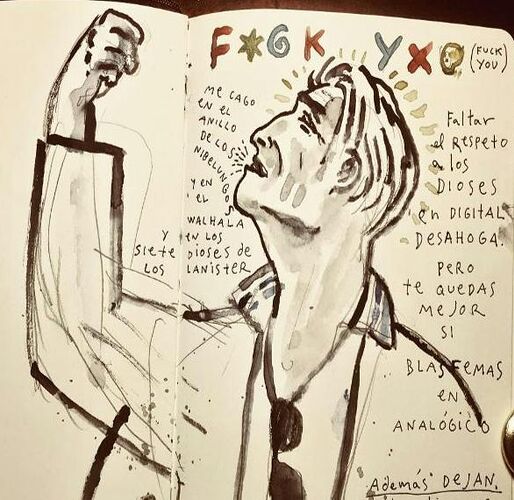 F*GK YX@ (FUCK
YOU)
ME CAGO
EN EL
ANILLO
DE LOS
NIBELUNGOS
Y EN
EL
WALHALA
Y EN LOS
SIETE DIOSES DE
LOS LANISTER
Faltar
el RESPETO
a los
DIOSES
en DIGITAL
DESAHOGA.
PERO
te QUEDAS
MEJOR
SI
BLASFEMAS
EN
ANALÓGICO
Además DEJAN.